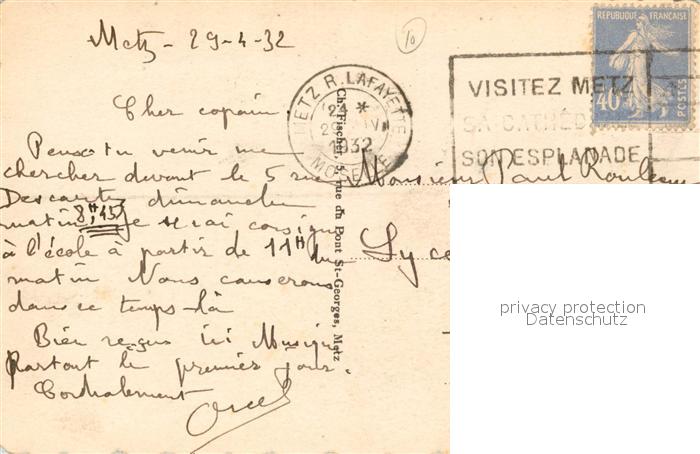 Metz - 29-4-32
10
METZ R. LAFAYETTE
1932
MOSELLE
VISITEZ METZ
SA CATHÉD
SON ESPLANADE
REPUBLIQUE FRANÇAISE
40c
POSTES
Ch. Fischer, 5, rue du Pont St-Georges, Metz
Cher copain
Penses tu venir me
chercher devant le 5 rue
Descartes dimanche
matin 8H,45. Je serai consigné
à l'école à partir de 11H du
matin Nous causerons
dans ce temps-là
Bien reçus ici Musique
Partout le premier jour.
Cordialement
Monsieur Paul
Lyc
privacy protection
Datenschutz